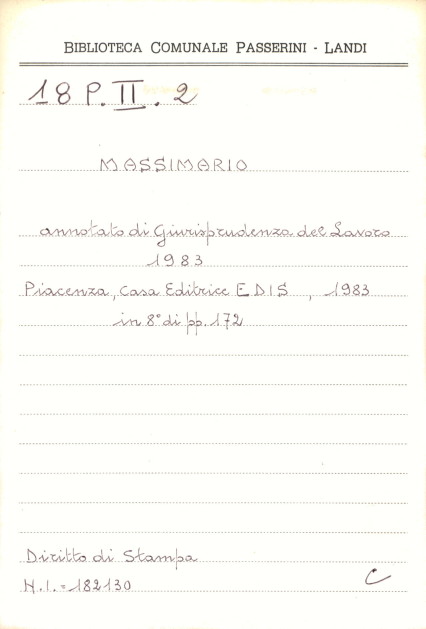 BIBLIOTECA COMUNALE PASSERINI - LANDI
18 P. II. 2
MASSIMARIO
annotato di Giurisprudenza del Lavoro
1983
Piacenza, Casa Editrice EDIS, 1983
in 8° di pp. 172
Diritto di Stampa
N.I. = 182130
C